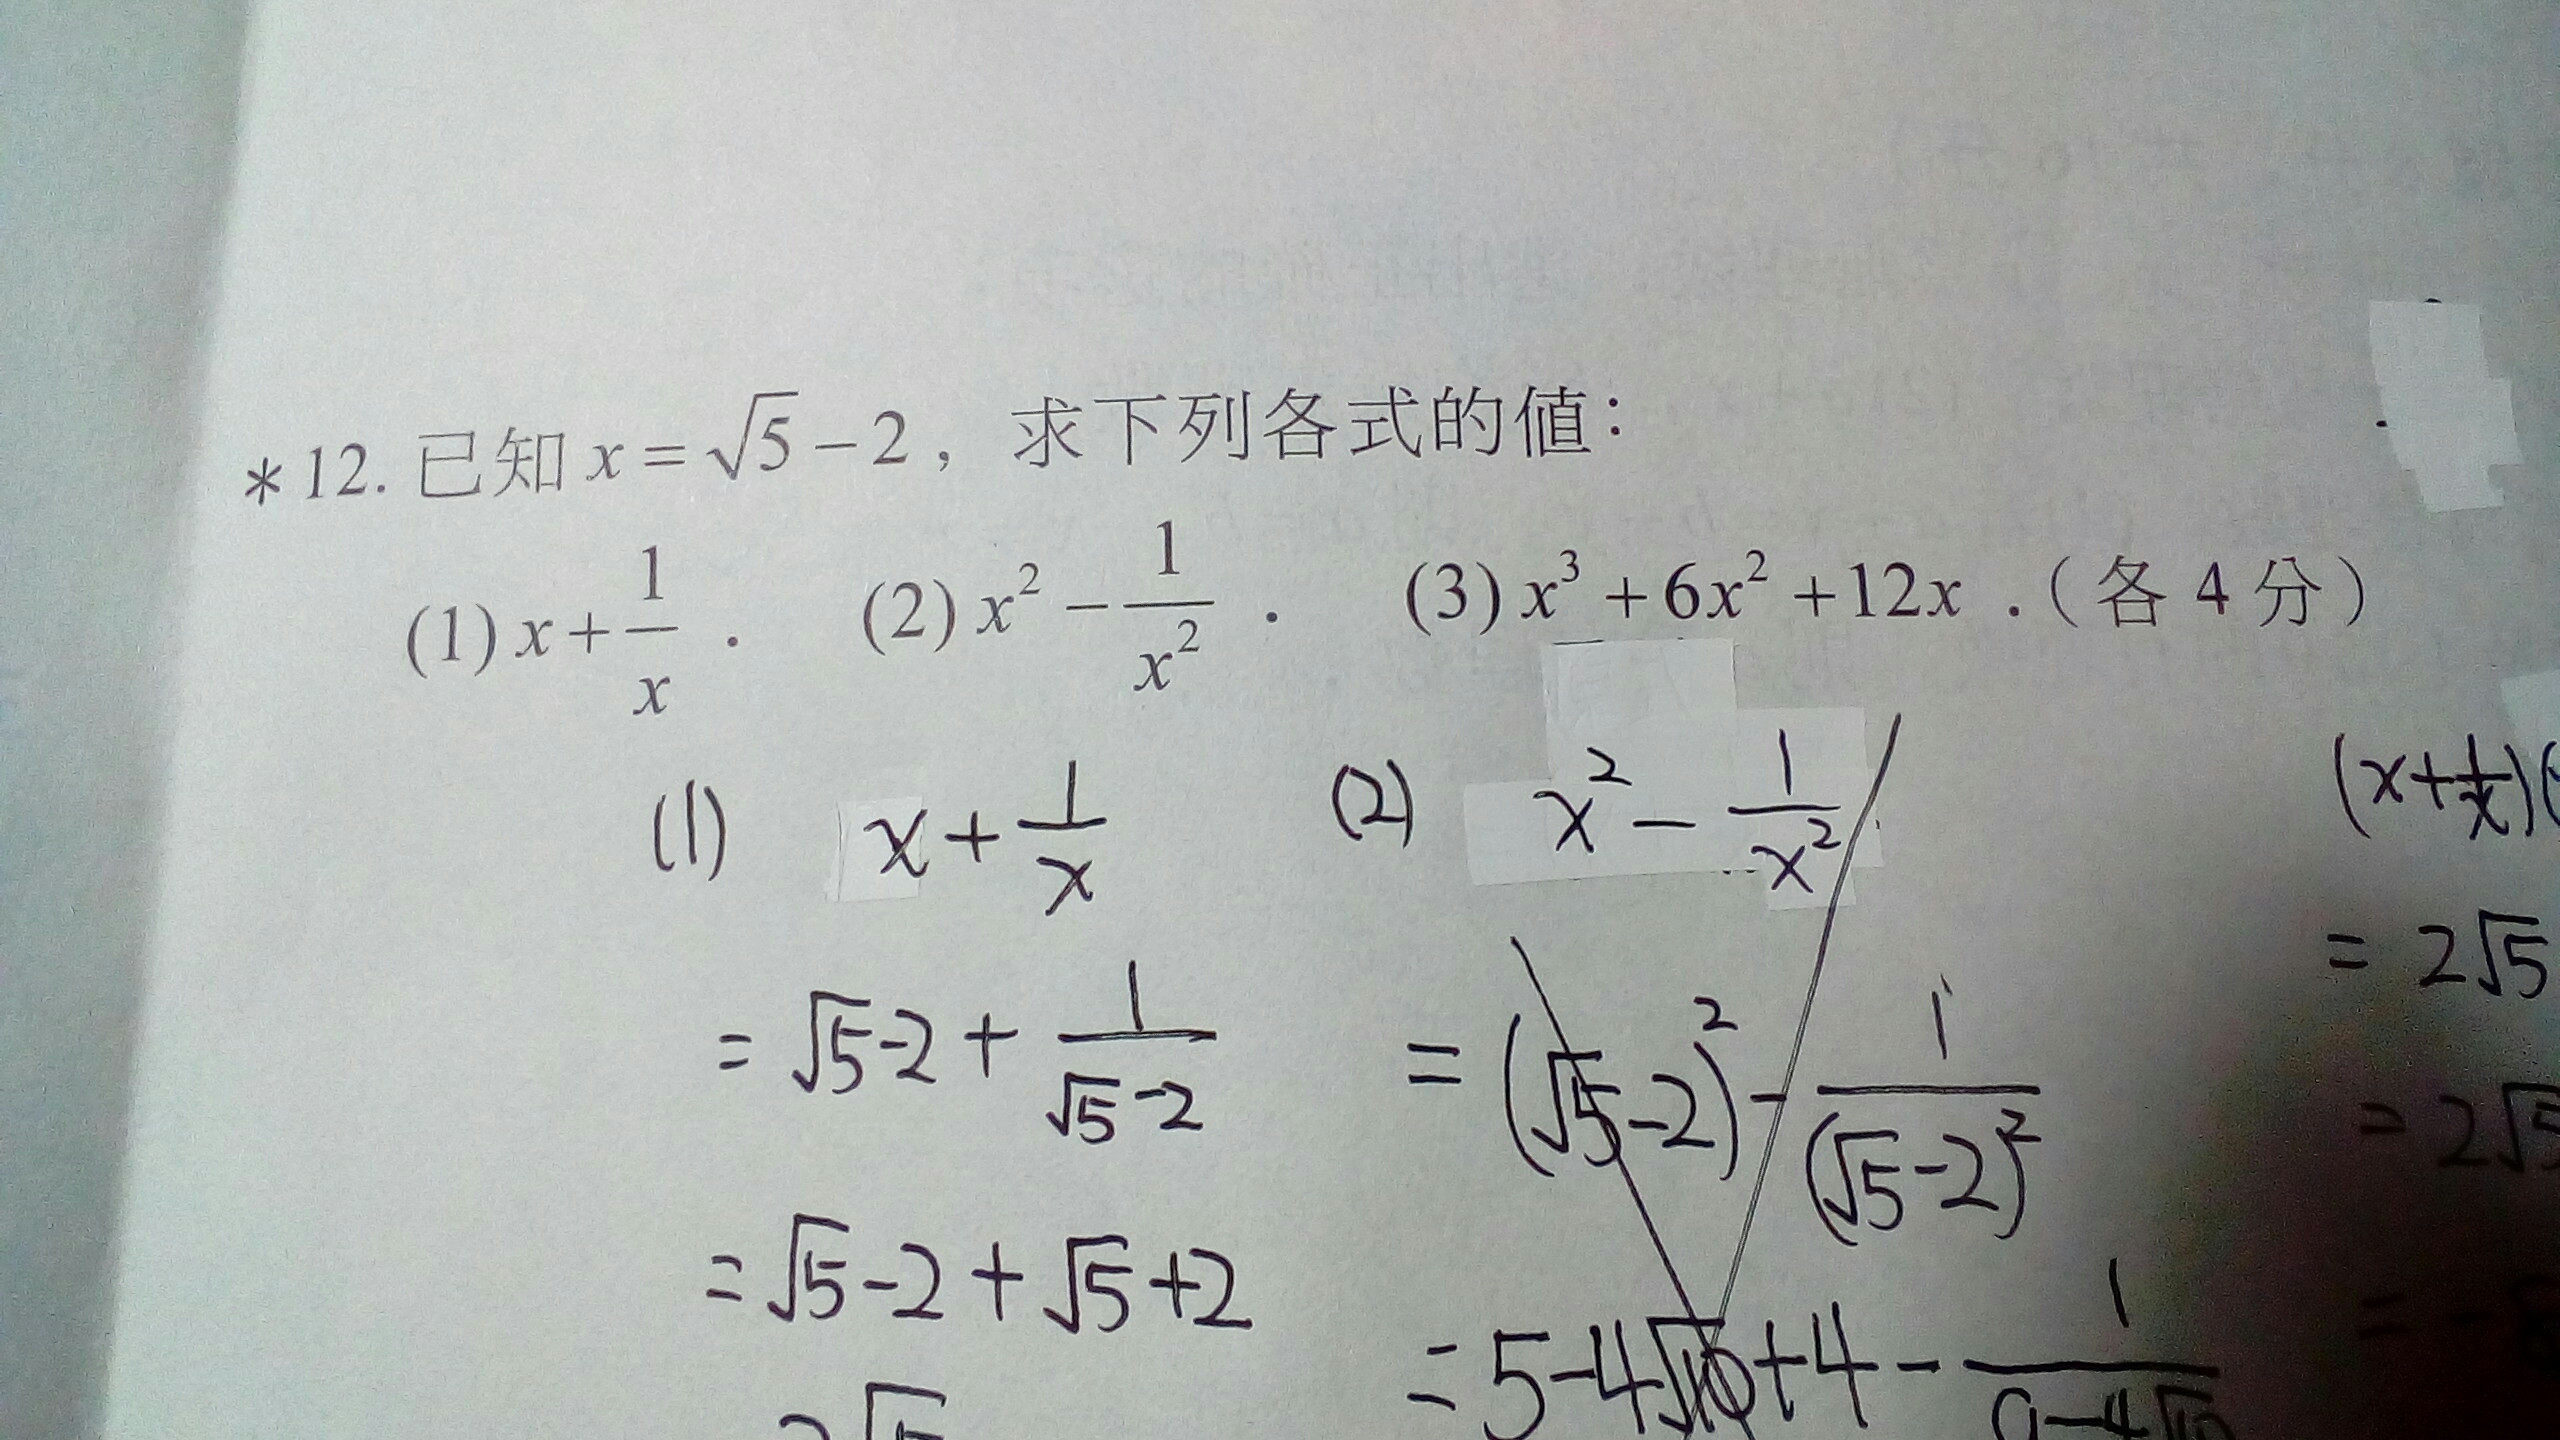 *12. 已知 x = √5 − 2，求下列各式的值：
(1) x + 1/x . (2) x² − 1/x² . (3) x³ + 6x² + 12x .（各 4 分）
(1) x + 1/x
= √5 - 2 + 1/(√5 - 2)
= √5 - 2 + √5 + 2
(2) x² - 1/x²
= (√5 - 2)² - 1/(√5 - 2)²
= 5 - 4√10 + 4 - 1/(9 - 4√10
(x + 1/x)(
= 2√5
= 2√5